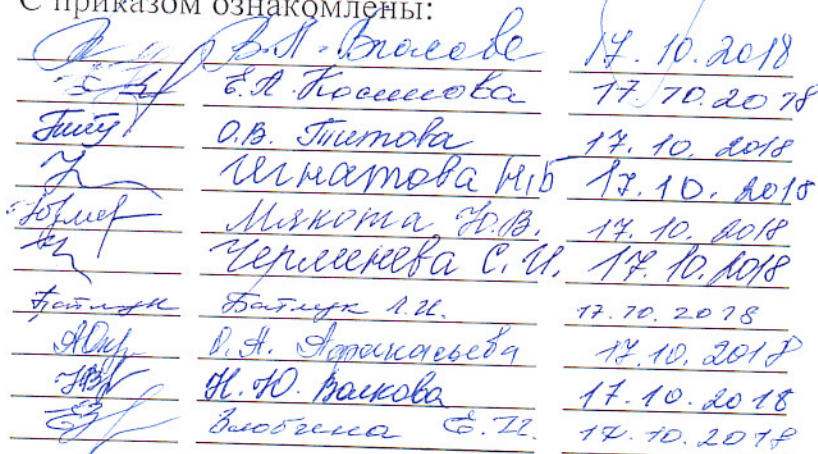 С приказом ознакомлены:
В.А. 17.10.2018
Е.А. Косинова 17.10.2018
О.В. Титова 17.10.2018
Игнатова Н.Б 17.10.2018
Мякота Ю.В. 17.10.2018
Черменева С.И. 17.10.2018
Батлук Батлук Л.И. 17.10.2018
О.А. Афанасьева 17.10.2018
Н.Ю. Волкова 17.10.2018
Злобина Е.И. 17.10.2018